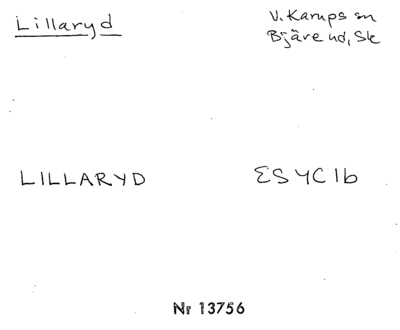 Lillaryd
V. Karups sn
Bjäre hd, Sk
LILLARYD
ESYC1b
Nr 13756